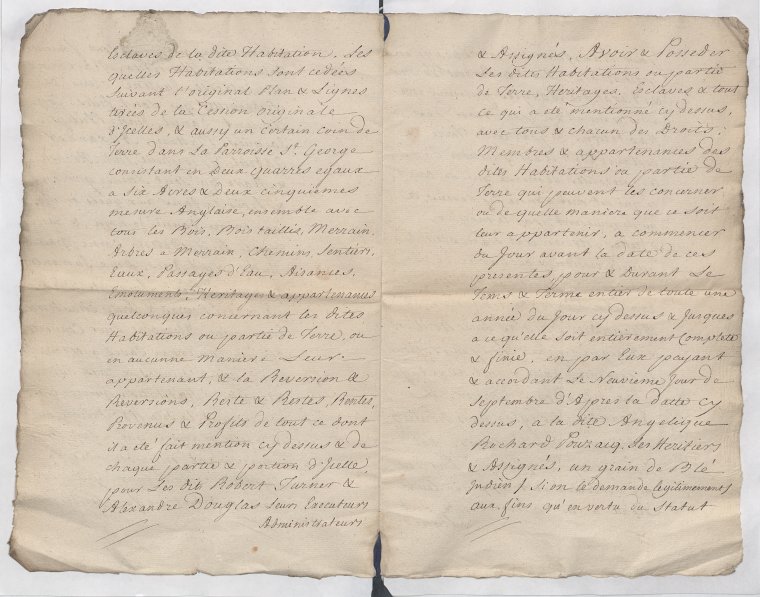 Esclaves de la dite Habitation. Les
quelles Habitations sont cedées
suivant l'original Plan & Lignes
tirées de la Cession originale
d'Jcelles, & aussy un certain coin de
Terre dans La Parroisse St. George
consistant en Deux quarrés egaux
a Six Acres & Deux cinquiemes
mesure Anglaise, ensemble avec
tous les Bois, Bois taillis, Merrain,
Arbres a Merrain, Chemins, Sentiers,
Eaux, Passages d'Eau, Aisances,
Emoluments, Heritages & appartenances
quelconques concernant les dites
Habitations ou partie de Terre, ou
en aucunne Maniere Leur
appartenant, & la Reversion &
Reversions, Reste & Restes, Rentes,
Revenus & Profits de tout ce dont
il a eté fait mention cy dessus & de
chaque partie & portion d'Jcelle,
pour Les dits Robert Turner &
Alexandre Douglas leurs Executeurs
Administrateurs
& Assignés, Avoir & Posseder
Les dites Habitations ou partie
de Terre, Heritages, Esclaves & tout
ce qui a eté mentionné cy dessus,
avec tous & chacun des Droits,
Membres & appartenances des
dites Habitations ou partie de
Terre qui peuvent les concerner
ou de quelle maniere que ce soit
leur appartenir, a commencer
du Jour avant la date de ces
presentes, pour & Durant Le
Tems & Terme entier de toute une
année du Jour cy dessus & Jusques
a ce qu'elle soit entièrement complete
& finie, en par Eux payant
& accordant Le Neuvieme Jour de
Septembre d'Apres la datte cy
dessus, a la dite Angelique
Rochard Pouzacq, Ses Heritiers
& Assignés, un grain de Blé
Jndien / Si on le demande legitimement /
aux fins qu'en vertu du Statut